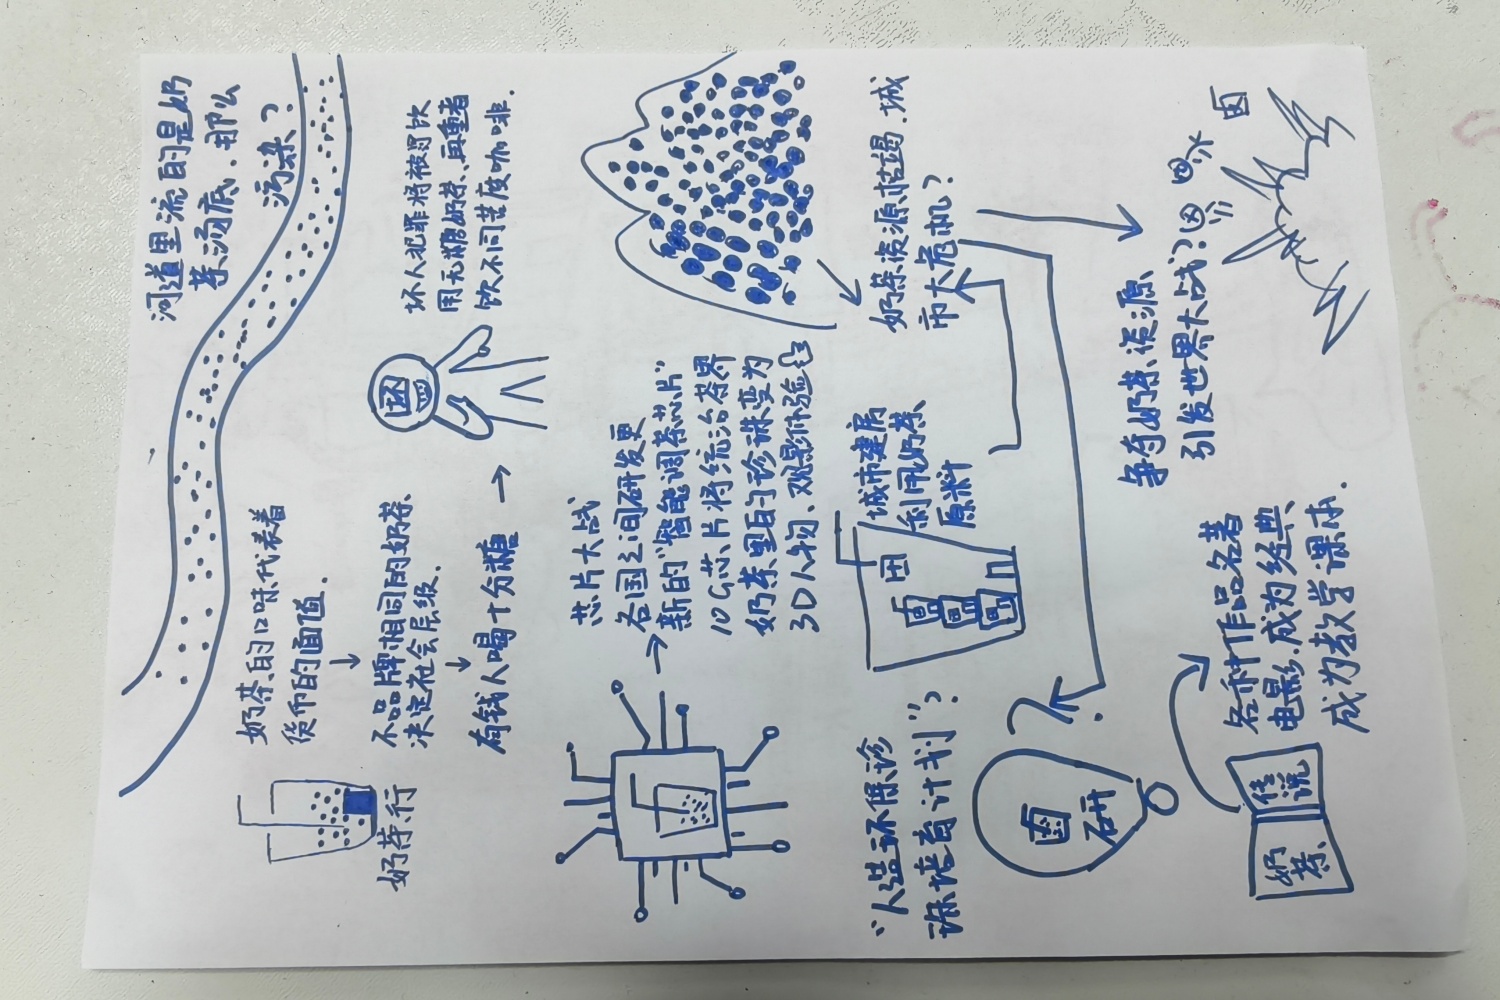 河道里流的是奶
茶汤底.那么
污染?
奶茶的口味代表着
货币的面值.
奶茶行
不品牌相同的奶茶
决定社会层级.
有钱人喝十分糖
坏人犯罪将被罚饮
用无糖奶茶、再重者
饮不同苦度咖啡.
芯片大战
各国之间研发更
新的"智能调茶芯片"
10G芯片将统治茶界
奶茶里的珍珠变为
3D人物、观影体验
奶茶资源枯竭.城
市大危机?
城市建房
利用奶茶
原料
"人造环保珍
珠培育计划"?
研
争夺奶茶资源
引发世界大战?
奶茶
传说
各种作品名著
电影.成为经典、
成为教学课本.